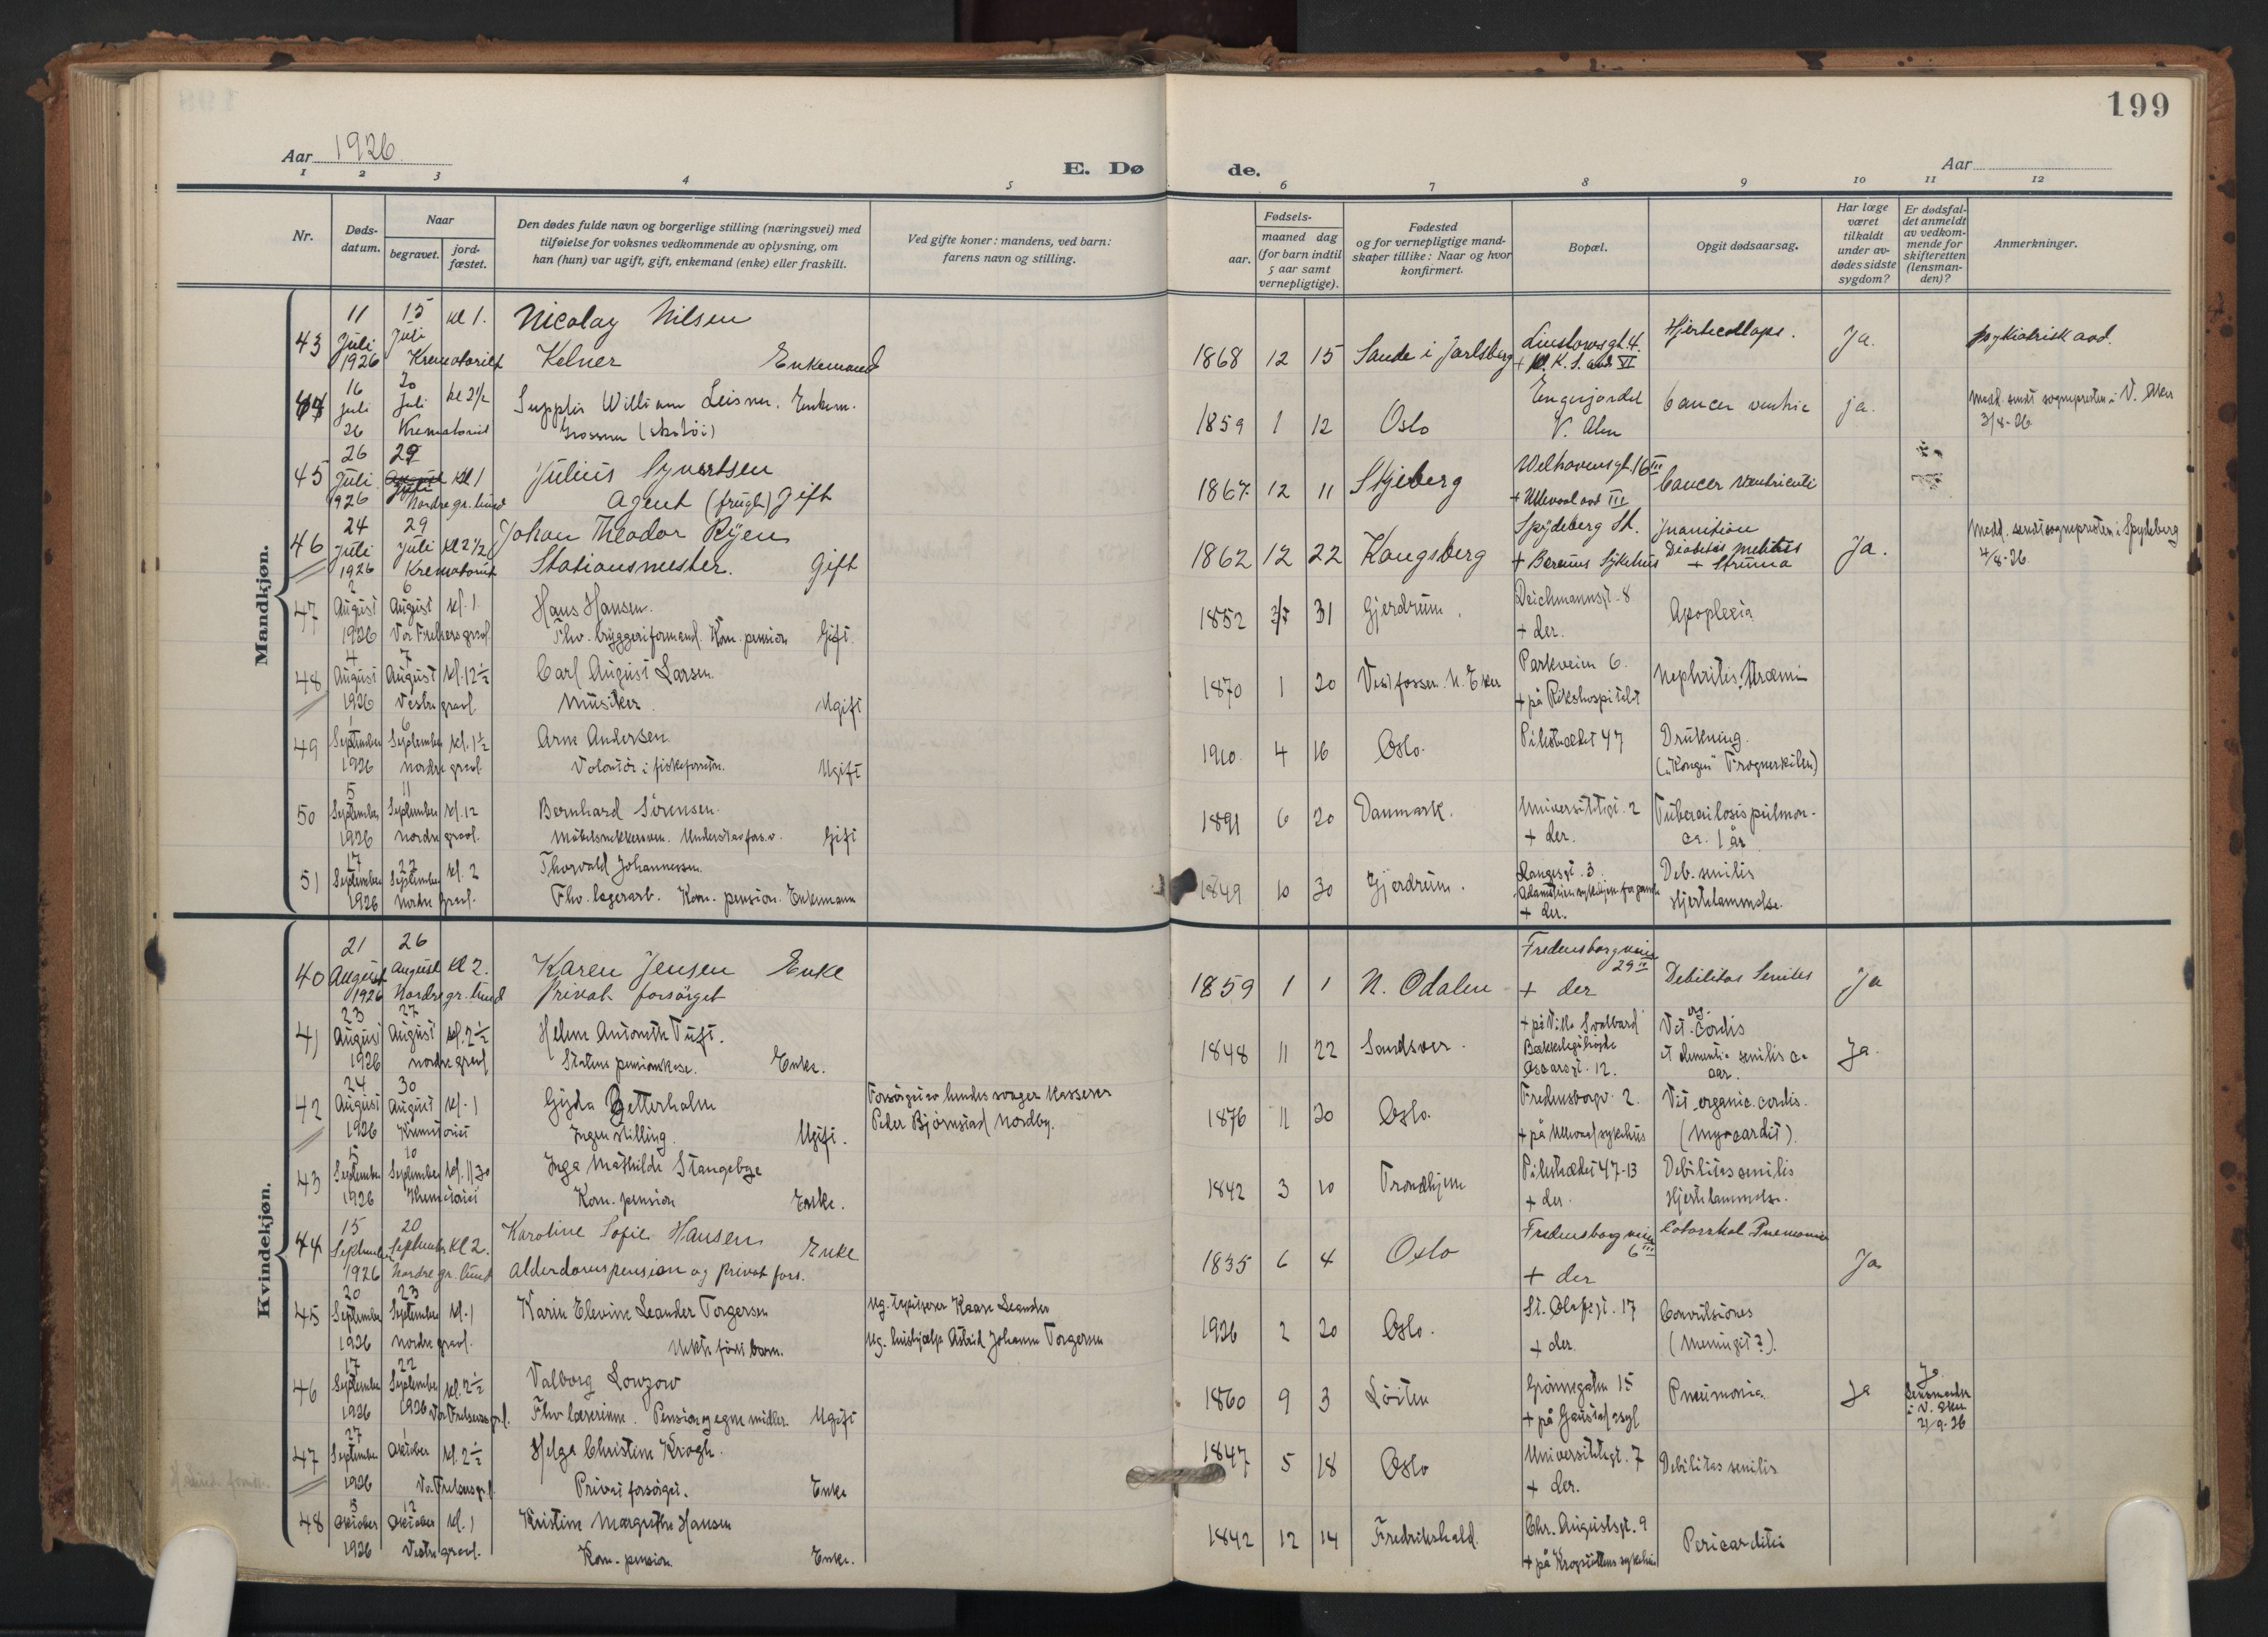 199
Aar 1926
E. Døde.
Aar
1 2 3 4 5 6 7 8 9 10 11 12
Nr.
Døds-datum.
Naar
begravet.
jord-fæstet.
Den dødes fulde navn og borgerlige stilling (næringsvei) med
tilføielse for voksnes vedkommende av oplysning, om
han (hun) var ugift, gift, enkemand (enke) eller fraskilt.
Ved gifte koner: mandens, ved barn:
farens navn og stilling.
Fødsels-
aar.
maaned dag
(for barn indtil
5 aar samt
vernepligtige).
Fødested
og for vernepligtige mand-
skaper tillike: Naar og hvor
konfirmert.
Bopæl.
Opgit dødsaarsag.
Har læge
været
tilkaldt
under av-
dødes sidste
sygdom?
Er dødsfal-
det anmeldt
av vedkom-
mende for
skifteretten
(lensman-
den)?
Anmerkninger.
Mandkjøn.
43 11 Juli 1926 15 Juli kl 1. Krematoriet
Nicolay Nilsen
Kelner Enkemand
1868 12 15 Sande i Jarlsberg Linstowsgt. 4. Hjertecollaps. Ja. psykiatrisk avd.
44 16 juli 26 20 Juli kl 2½ Krematoriet
William Leisner. Enkem.
Grosserer (skotøi)
1859 1 12 Oslo Engerjordet V. Aker Cancer ventric ja. Medd. sendt sogneprestens i V. Aker
3/8-26
45 26 Juli 1926 29 Juli kl 1 Nordre gr. lund
Julius Syvertsen
Agent (frugt) Gift
1867 12 11 Skjeberg Welhavensgt. 16 III + Ullevaal avd III Cancer ventriculi
46 24 Juli 1926 29 Juli kl 2½ Krematoriet
Johan Theodor Ryen
Stationsmester. Gift
1862 12 22 Kongsberg Spydeberg St. + Bærums Sykehus Inanition Diabetes melitus + Struma Ja. Medd. sendt sognepresten i Spydeberg
4/8-26.
47 2 August 1926 6 August kl. 1. Vor Frelsers gravl.
Hans Hansen.
Fhv. bryggeriformand. Kom. pension Gift.
1852 31 Gjerdrum. Deichmannsgt. 8 + der. Apoplexia
48 4 August 1926 7 August kl. 12½ Vestre gravl.
Carl August Larsen.
Musiker. Ugift
1870 1 20 Vestfossen. N. Eker Parkveien 6. + på Rikshospitalet Nephritis. Uræmi
49 1 September 1926 6 September kl. 1½ Nordre gravl.
Arne Andersen.
Volontør i fiskeforretn. Ugift
1910. 4 16 Oslo. Pilestrædet 47 Drukning.
("Kongen" Frognerkilen)
50 5 September 1926 11 September kl. 12 Nordre gravl.
Bernhard Sørensen.
Møbelsnekkersven. Understøt. av fors.v. Gift
1891 6 20 Danmark. Universitetsgt. 2 + der. Tuberculosis pulmon.
ca. 1 år
51 17 September 1926 22 September kl. 2 Nordre gravl.
Thorvald Johannessen.
Fhv. lagerarb. Kom. pension. Enkemann
1849 10 30 Gjerdrum. Langesgt. 3. + der. Deb. senilis
Hjertelammelse.
Kvindekjøn.
40 21 August 1926 26 August kl 2. Nordre gr. lund
Karen Jensen Enke
Privat forsørget
1859 1 1 N. Odalen Fredensborgveien 29 IV + der Debilitas Seniles Ja
41 23 August 1926 27 August kl. 2½ Nordre gravl
Helene Antonette Tuft.
Statens pensionskasse. Enke.
1848 11 22 Sandsvær. + på Villa Svalbard Bækkelagshøgda Oscarsgt. 12. Vit. org. cordis
et dementia senilis ca
aar. Ja.
42 24 August 1926 30 August kl. 1 Krematoriet
Gyda Zetterholm
Ingen stilling. Ugift.
Forsørget av hendes svoger kasserer
Peder Bjørnstad Nordby.
1876 11 20 Oslo. Fredensborgv. 2. + på Ullevaal sykehus Vit. organic. cordis.
(Myocardit).
43 5 September 1926 10 September kl. 11 30 Krematoriet
Inga Mathilde Stangebye
Kom. pension Enke.
1842 3 10 Trondhjem Pilestrædet 47-13 + der. Debilitas senilis
Hjertelammelse.
44 15 September 1926 20 September kl 2. Nordre gr. lund
Karoline Sofie Hansen Enke
Alderdomspension og privat fors.
1835 6 4 Oslo Fredensborgveien 6 III + der Catarrhal Pneumonia Ja
45 20 September 1926 23 September kl. 1 Nordre gravl.
Karin Elevine Leander Torgersen
Uekte født barn.
Ug. Kaare Leander
Ug. hushjælp Astrid Johanne Torgersen
1926 2 20 Oslo. St. Olafsgt. 17 + der. Convulsiones
(Meningit?).
46 17 September 1926 22 September 1926 kl. 2½ Vor Frelsers gr.l.
Valborg Lowzow
Fhv. lærerinne. Pension og egne midler. Ugift
1860 9 3 Løiten Grønnegaten 15 + på Gaustad asyl Pneumonia Ja Ja.
Lensmanden
i V. Aker
21/9-26
47 27 September 1926 1 Oktober kl. 2½ Vor Frelsers gr.l.
Helga Christine Krogh.
Privat forsørget. Enke
1847 5 18 Oslo Universitetsgt. 7 + der. Debilitas senilis
48 8 Oktober 1926 12 Oktober kl. 1 Vestre gravl.
Kristine Margrethe Hansen
Kom. pension Enke.
1842 12 14 Fredrikshald. Chr. Augustsgt. 9 + på Krogstøttens sykehus Pericarditis